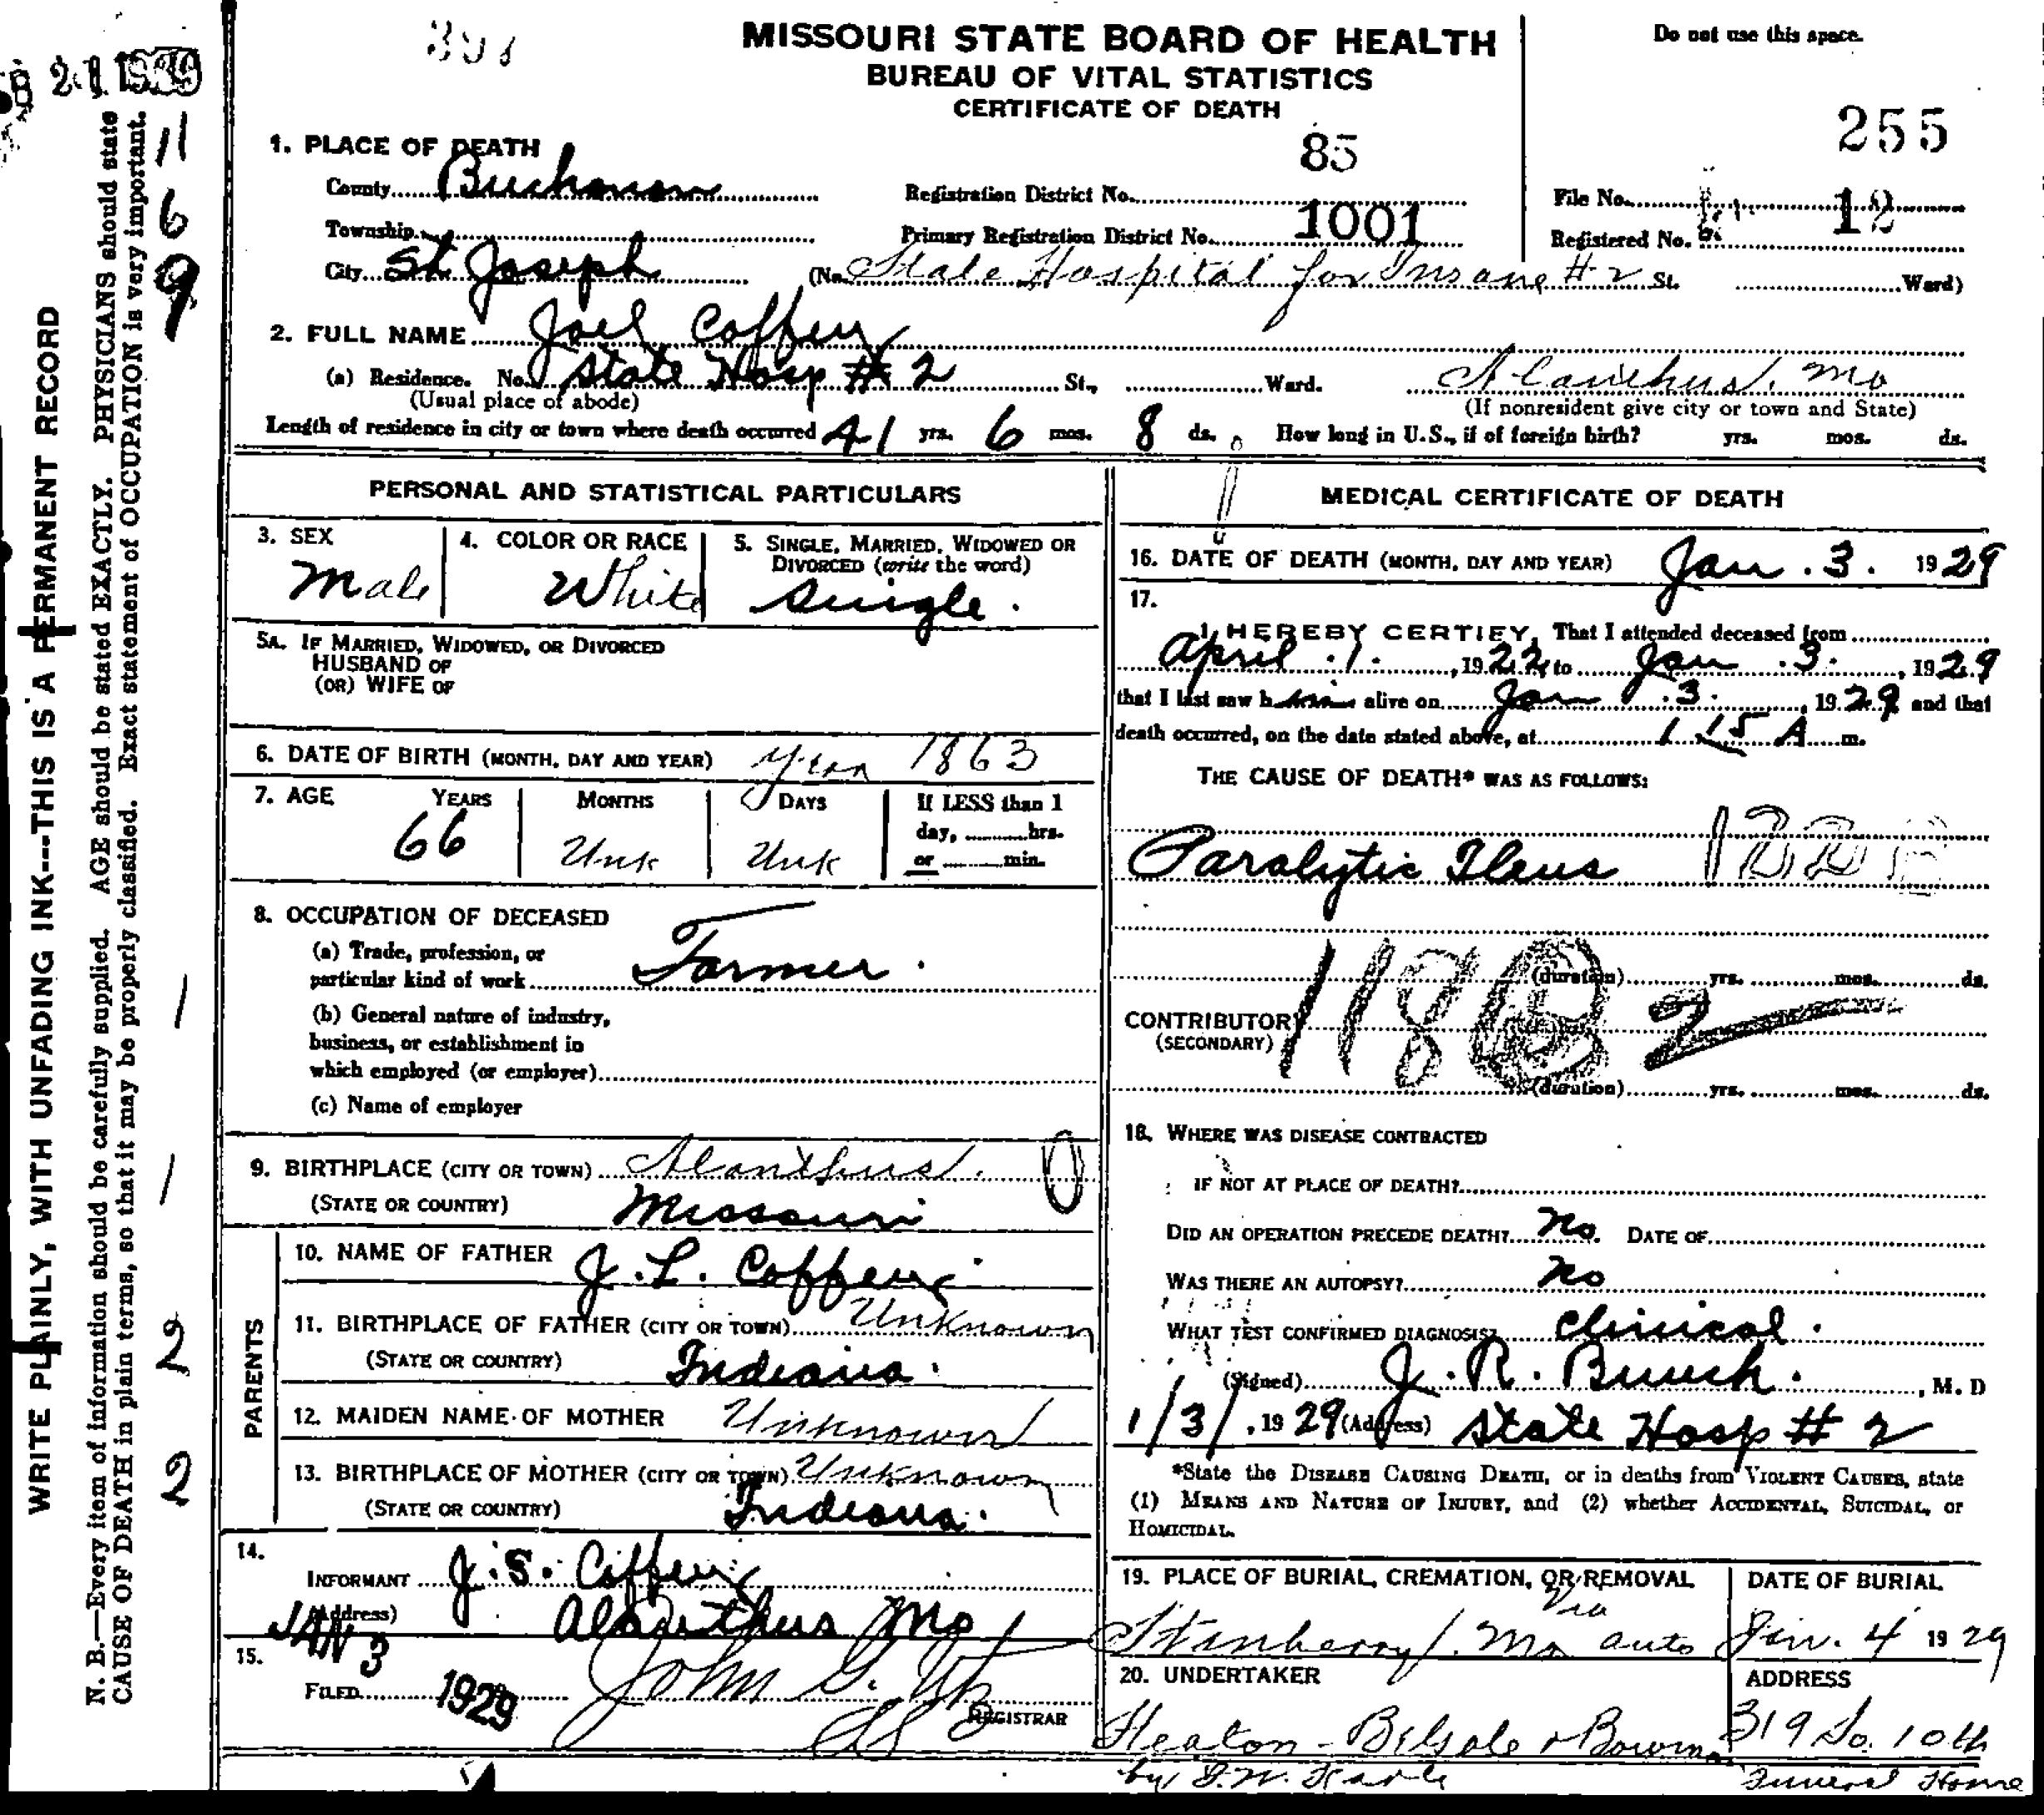 MISSOURI STATE BOARD OF HEALTH
BUREAU OF VITAL STATISTICS
CERTIFICATE OF DEATH
Do not use this space.
255
21
11
6
9
1. PLACE OF DEATH
County Buchanan
Registration District No. 85
File No.
Township
Primary Registration District No. 1001
Registered No. 12
City St Joseph (No. State Hospital for Insane #2 St. Ward)
2. FULL NAME Joel Coffey
(a) Residence. No. State Hosp #2 St., Ward. Alanthus, Mo
(Usual place of abode) (If nonresident give city or town and State)
Length of residence in city or town where death occurred 41 yrs. 6 mos. 8 ds. How long in U.S., if of foreign birth? yrs. mos. ds.
PERSONAL AND STATISTICAL PARTICULARS
3. SEX
Male
4. COLOR OR RACE
White
5. SINGLE, MARRIED, WIDOWED OR
DIVORCED (write the word)
Single.
5A. IF MARRIED, WIDOWED, OR DIVORCED
HUSBAND OF
(OR) WIFE OF
6. DATE OF BIRTH (MONTH, DAY AND YEAR) Year 1863
7. AGE YEARS MONTHS DAYS If LESS than 1
day, hrs.
66 Unk Unk or min.
8. OCCUPATION OF DECEASED
(a) Trade, profession, or
particular kind of work Farmer.
(b) General nature of industry,
business, or establishment in
which employed (or employer)
(c) Name of employer
9. BIRTHPLACE (CITY OR TOWN) Alanthus. 0
(STATE OR COUNTRY) Missouri
PARENTS
10. NAME OF FATHER J. L. Coffey.
11. BIRTHPLACE OF FATHER (CITY OR TOWN) Unknown
(STATE OR COUNTRY) Indiana.
12. MAIDEN NAME OF MOTHER Unknown
13. BIRTHPLACE OF MOTHER (CITY OR TOWN) Unknown
(STATE OR COUNTRY) Indiana.
14.
INFORMANT J. S. Coffey
(Address) Alanthus Mo
15.
FILED JAN 3 1929 John G.
REGISTRAR
MEDICAL CERTIFICATE OF DEATH
16. DATE OF DEATH (MONTH, DAY AND YEAR) Jan. 3. 1929
17.
I HEREBY CERTIFY, That I attended deceased from
April. 1. , 1922, to Jan. 3. , 1929
that I last saw him alive on Jan. 3. , 1929 and that
death occurred, on the date stated above, at 1 15 A m.
THE CAUSE OF DEATH* WAS AS FOLLOWS:
Paralytic Ileus
(duration) yrs. mos. ds.
CONTRIBUTORY
(SECONDARY)
(duration) yrs. mos. ds.
18. WHERE WAS DISEASE CONTRACTED
IF NOT AT PLACE OF DEATH?
DID AN OPERATION PRECEDE DEATH? No. DATE OF
WAS THERE AN AUTOPSY? No
WHAT TEST CONFIRMED DIAGNOSIS? Clinical.
(Signed) J. R. Bunch. , M. D
1/3/, 1929 (Address) State Hosp #2
*State the DISEASE CAUSING DEATH, or in deaths from VIOLENT CAUSES, state
(1) MEANS AND NATURE OF INJURY, and (2) whether ACCIDENTAL, SUICIDAL, or
HOMICIDAL.
19. PLACE OF BURIAL, CREMATION, OR REMOVAL
DATE OF BURIAL
Via
Stanberry, Mo auto
Jan. 4 1929
20. UNDERTAKER
ADDRESS
Heaton-Begole & Bowman
319 So. 10th
by Funeral Home
WRITE PLAINLY, WITH UNFADING INK---THIS IS A PERMANENT RECORD
N. B.—Every item of information should be carefully supplied. AGE should be stated EXACTLY. PHYSICIANS should state
CAUSE OF DEATH in plain terms, so that it may be properly classified. Exact statement of OCCUPATION is very important.
1
1
2
2